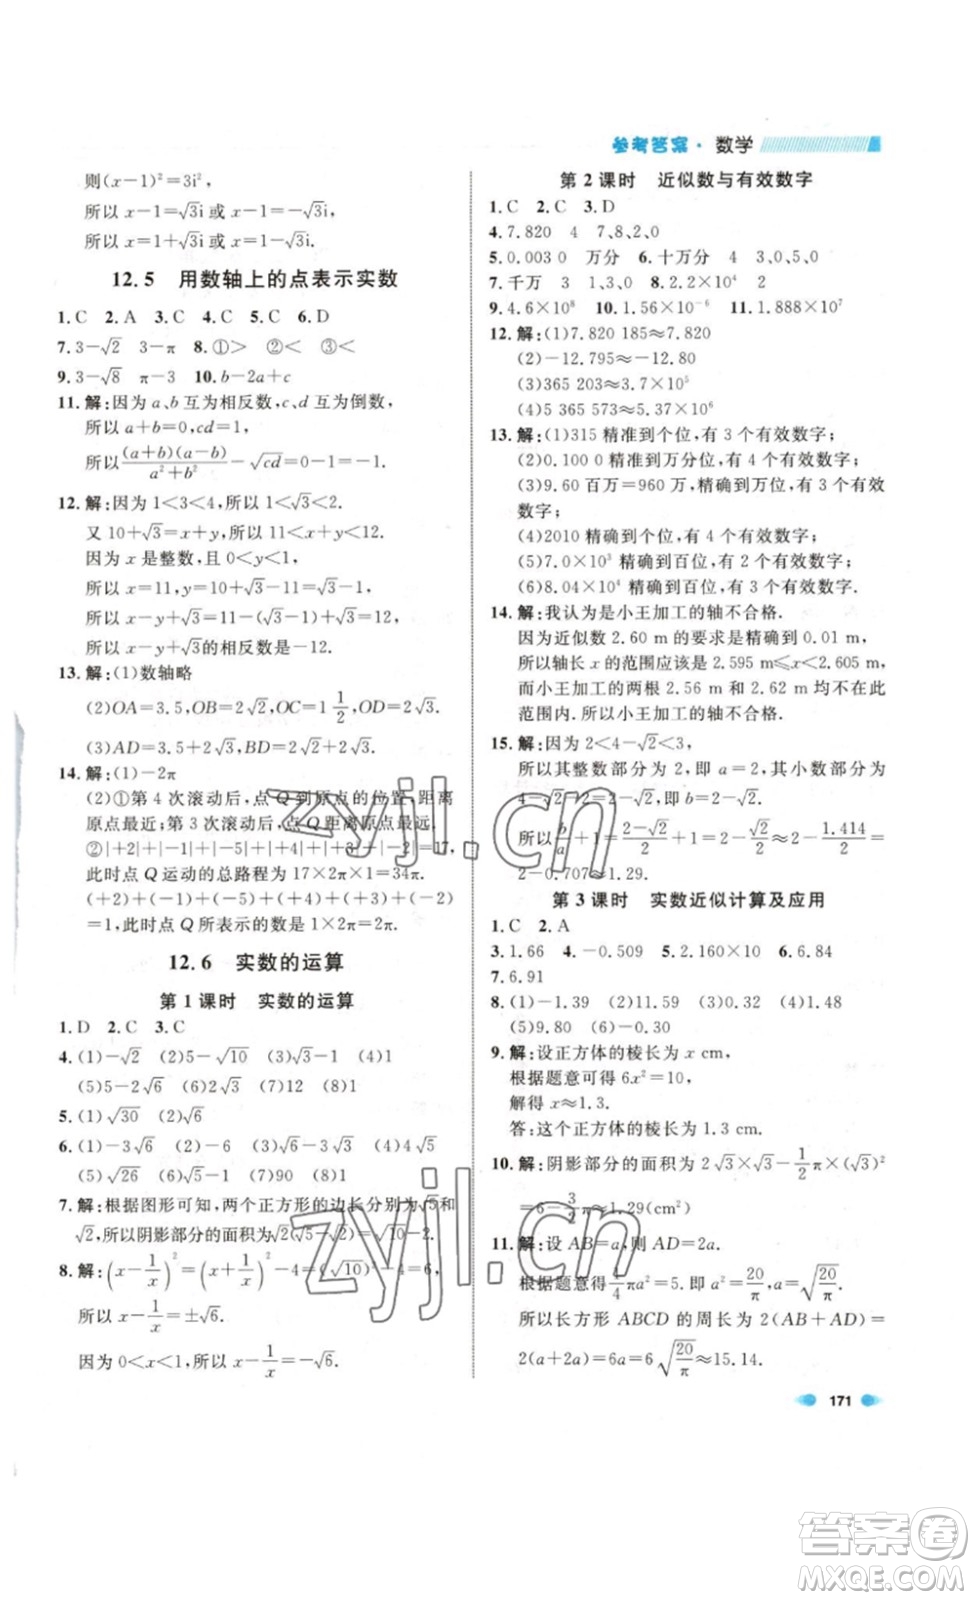 参考答案·数学
则(x－1)²＝3i²,
所以 x－1＝√3i 或 x－1＝－√3i,
所以 x＝1＋√3i 或 x＝1－√3i.
12.5 用数轴上的点表示实数
1.C 2.A 3.C 4.C 5.C 6.D
7.3－√2 3－π 8.①＞ ②＜ ③＜
9.3－√8 π－3 10.b－2a＋c
11.解:因为 a、b 互为相反数,c、d 互为倒数,
所以 a＋b＝0,cd＝1,
所以 (a＋b)(a－b)/(a²＋b²) － √cd＝0－1＝－1.
12.解:因为 1＜3＜4,所以 1＜√3＜2.
又 10＋√3＝x＋y,所以 11＜x＋y＜12.
因为 x 是整数,且 0＜y＜1,
所以 x＝11,y＝10＋√3－11＝√3－1,
所以 x－y＋√3＝11－(√3－1)＋√3＝12,
所以 x－y＋√3的相反数是－12.
13.解:(1)数轴略
(2)OA＝3.5,OB＝2√2,OC＝1 1/2,OD＝2√3.
(3)AD＝3.5＋2√3,BD＝2√2＋2√3.
14.解:(1)－2π
(2)①第 4 次滚动后,点 Q 到原点的位置,距离
原点最近;第 3 次滚动后,点 Q 距离原点最远.
②|＋2|＋|－1|＋|－5|＋|＋4|＋|＋3|＋|－2|＝17,
此时点 Q 运动的总路程为 17×2π×1＝34π.
(＋2)＋(－1)＋(－5)＋(＋4)＋(＋3)＋(－2)＝
1,此时点 Q 所表示的数是 1×2π＝2π.
12.6 实数的运算
第 1 课时 实数的运算
1.D 2.C 3.C
4.(1)－√2 (2)5－√10 (3)1 (4)1
(5)5－2√6 (6)2√3 (7)12 (8)1
5.(1)√30 (2)√6
6.(1)－3√6 (2)－60 (3)－6√3 (4)4√5
(5)√26 (6)－√15 (7)90 (8)1
7.解:根据图形可知,两个正方形的边长分别为√5和
√2,所以阴影部分的面积为√2(√5－√2)＝√10－2.
8.解:(x－1/x)²＝(x＋1/x)²－4＝(√10)²－4＝6,
所以 x－1/x＝±√6.
因为 0＜x＜1,所以 x－1/x＝－√6.
第 2 课时 近似数与有效数字
1.C 2.C 3.D
4.7.820 4 7、8、2、0
5.0.003 0 万分 6.十万分 4 3、0、5、0
7.千万 3 1、3、0 8.2.2×10⁴ 2
9.4.6×10⁸ 10.1.56×10⁻⁶ 11.1.888×10⁷
12.解:(1)7.820 185≈7.820
(2)－12.795≈－12.80
(3)365 203≈3.7×10⁵
(4)5 365 573≈5.37×10⁶
13.解:(1)315 精准到个位,有 3 个有效数字;
(2)0.100 0 精确到万分位,有 4 个有效数字;
(3)9.60 百万＝960 万,精确到万位,有 3 个有效
数字;
(4)2010 精确到个位,有 4 个有效数字;
(5)7.0×10³ 精确到百位,有 2 个有效数字;
(6)8.04×10⁴ 精确到百位,有 3 个有效数字.
14.解:我认为是小王加工的轴不合格.
因为近似数 2.60 m 的要求是精确到 0.01 m,
所以轴长 x 的范围应该是 2.595 m≤x＜2.605 m,
而小王加工的两根 2.56 m 和 2.62 m 均不在此
范围内.所以小王加工的轴不合格.
15.解:因为 2＜4－√2＜3,
所以其整数部分为 2,即 a＝2,其小数部分为
4－√2－2＝2－√2,即 b＝2－√2.
所以 b/a＋1＝(2－√2)/2＋1＝2－√2/2≈2－1.414/2＝
2－0.707≈1.29.
第 3 课时 实数近似计算及应用
1.C 2.A
3.1.66 4.－0.509 5.2.160×10 6.6.84
7.6.91
8.(1)－1.39 (2)4.65 (3)0.32 (4)1.48
(5)9.89 (6)－0.30
9.解:设正方体的棱长为 x cm,
根据题意可得 6x²＝10,
解得 x≈1.3.
答:这个正方体的棱长为 1.3 cm.
10.解:阴影部分的面积为 2√3×√3－1/2π×(√3)²
＝6－3/2π≈1.29(cm²)
11.解:设 AB＝a,则 AD＝2a.
根据题意得 1/4πa²＝5. a²＝20/π,a＝√(20/π).
所以长方形 ABCD 的周长为 2(AB＋AD)＝
2(a＋2a)＝6a＝6√(20/π)≈15.14.
171
zyjl.cn
zyjl.cn
答案卷
MXQE.COM